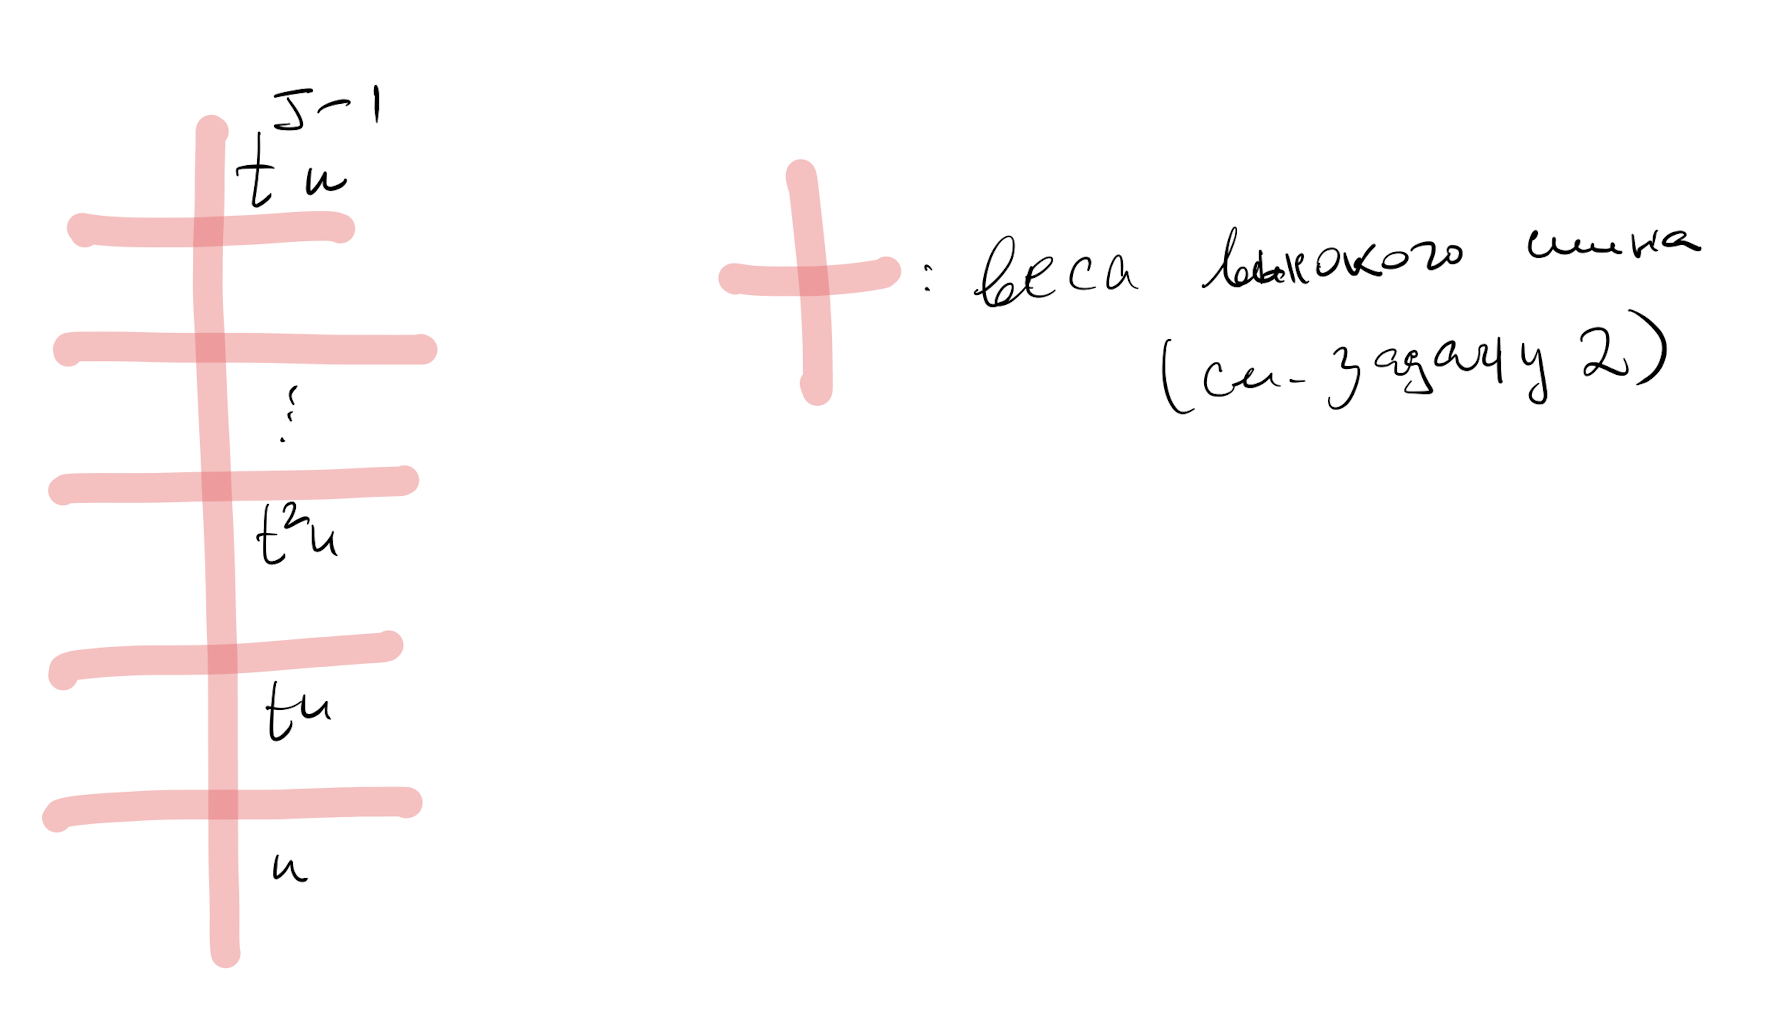 t^{J-1} u
⋮
t²u
tu
u
: веса высокого спина
(см. задачу 2)